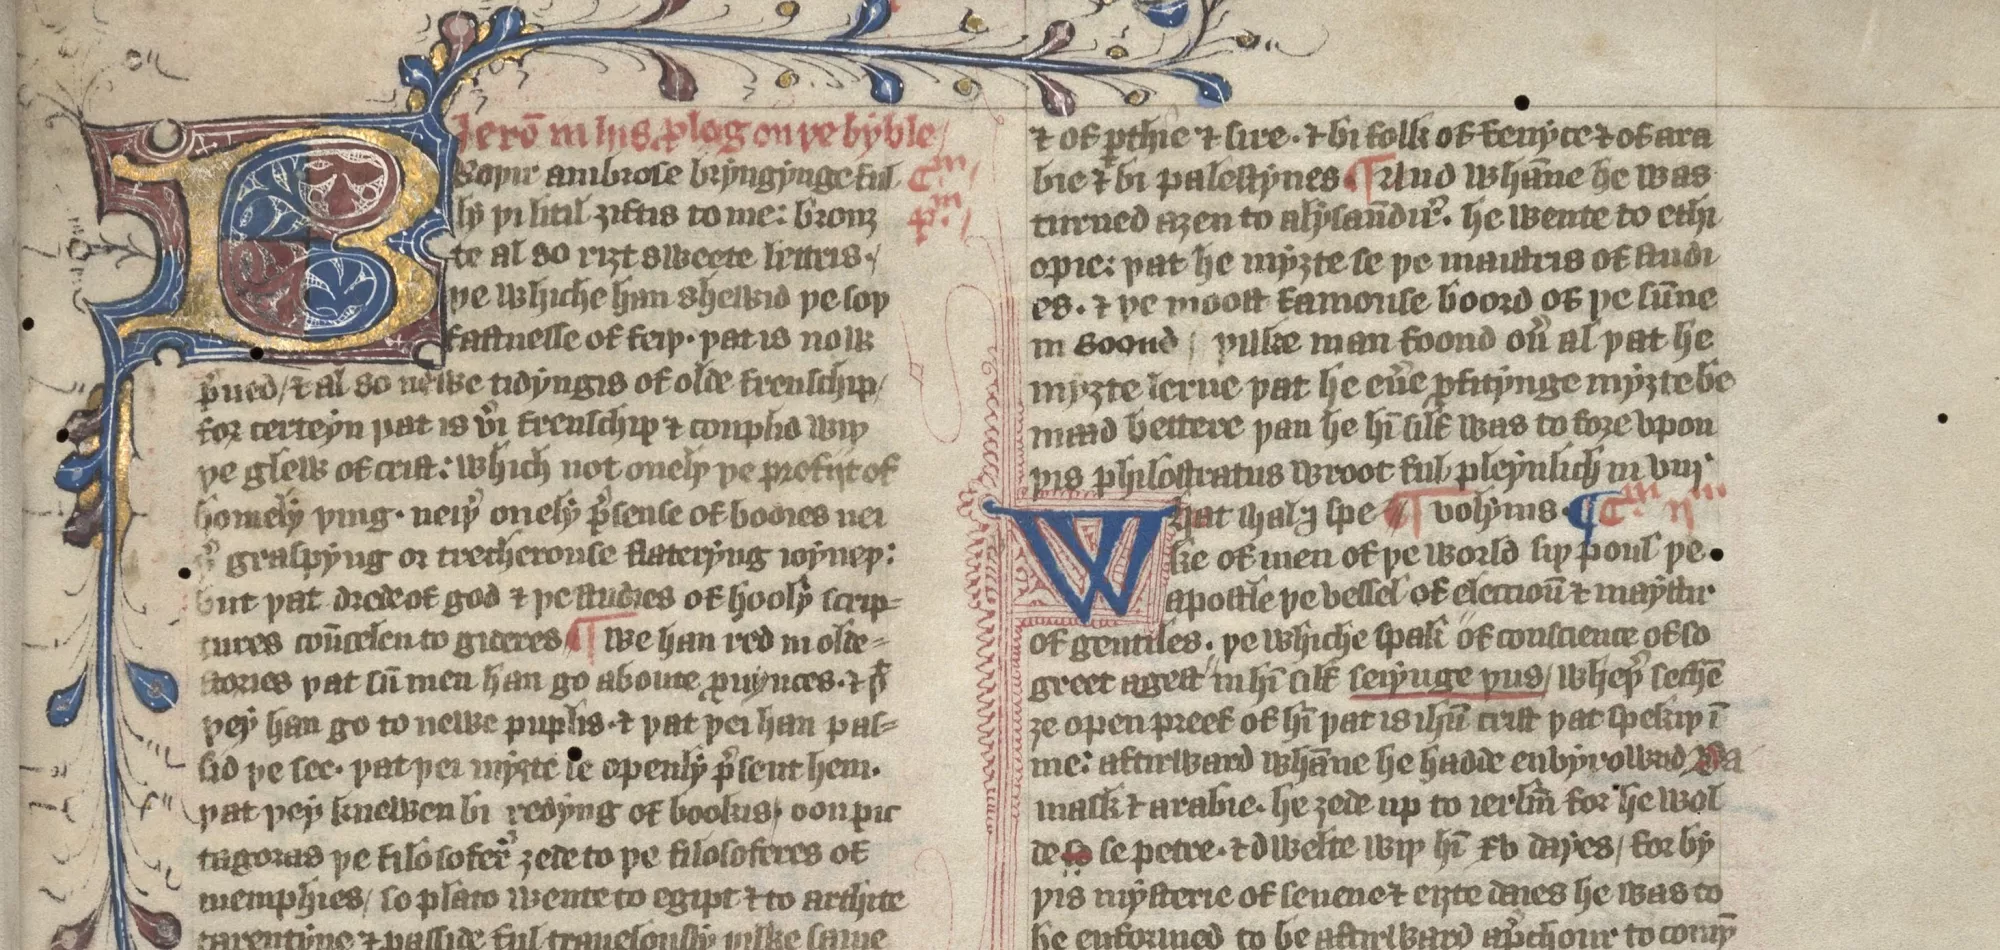 Jerom̄ in his ꝓlog on þe byble
Broþir ambrose bryngynge ful
ly þi litil ȝiftis to me: brouȝ
te al so riȝt sweete lettris·/
þe whiche han shewid þe soþ
fastnesse of feiþ· þat is now
p̄ued/ ⁊ al so newe tidyngis of olde frenschip/
for certeyn þat is v̓i frenschip ⁊ couplid wiþ
þe glew of crist: which not onely þe profiȝt of
homely þing· neiþ̓ onely p̓sense of bodies nei
þ̓ graspyng or trecherouse flateryng ioyneþ:
but þat drede of god ⁊ þe studies of hooly scrip=
tures coūcelen to gideres ¶ We han red in olde=
stories þat sū men han go aboute ꝓuynces· ⁊ þ̓
þey han go to newe puplis· ⁊ þat þei han pas=
sid þe see· þat þei myȝte se openly p̓sent hem·
þat þey knewen bi redyng of bookis, so on pic
tagoras þe filosofer̓ ȝede to þe filosoferes of
memphies/ so plato wente to egipt ⁊ to archite
tarentyne ⁊ passide ful trauelously þilke same
C.m
p.m
⁊ of ꝑthie ⁊ sire· ⁊ bi folk of fenyce ⁊ of ara
bie ⁊ bi palestynes ¶ And whan̄e he was
turned aȝen to alysaūdir̓· he wente to ethi
opie: þat he myȝte se þe maistris of studi
es· ⁊ þe moost famouse boord of þe sūne
in soond / þilke man foond ou̓ al þat he
myȝte lerne þat he eu̓e ꝓfitynge myȝte be
maad bettere þan he hī silf was to fore vpon
þis philostratus wroot ful pleynlich in viij
What shal y spe ¶ volyms· ¶ C.m ij
ke of men of þe world siþ poul þe·
apostle þe vessel of eleccioū ⁊ maystir
of gentiles· þe whiche spak of conscience of so
greet agest in hī silf seiynge þus/ wheþ̓ sechē
ȝe open preef of hī þat is ihū crist þat spekiþ ī
me: aftirward whan̄e he hadde enbyrowid Da
mask ⁊ arabie· he ȝede up to ierlm̄ for he wol
de se petre· ⁊ dwelte wiþ hī xv dayes/ for by
þis mysterie of seuene ⁊ eiȝte daies he was to
be enformed to be aftirward ap̓chour to comȳ